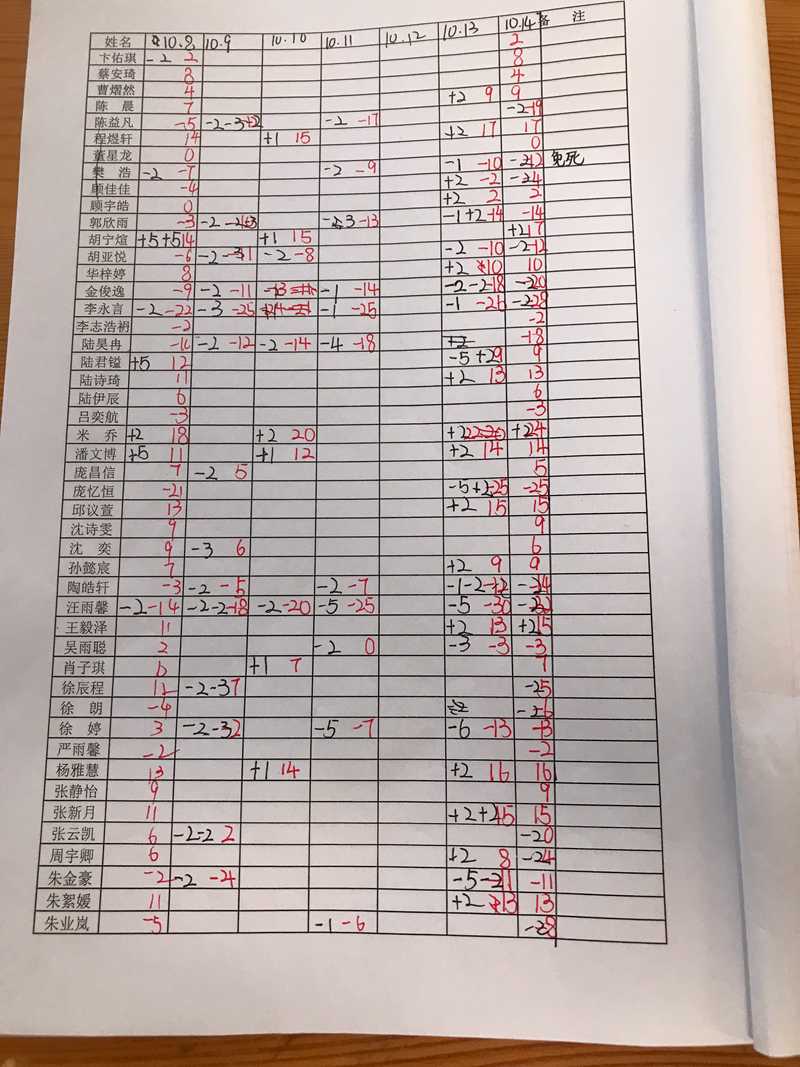 姓名 10.8 10.9 10.10 10.11 10.12 10.13 10.14 备 注
卞佑琪 -2 2 2
蔡安琦 8 8
曹熠然 4 4
陈 晨 7 +2 9 9
陈益凡 -5 -2-3+2 -2 -17 -2-19
程煜轩 14 +1 15 +2 17 17
董星龙 0 0
樊 浩 -2 -7 -2 -9 -1 -10 -2-12 免死
顾佳佳 -4 +2 -2 -2-4
顾宇皓 0 +2 2 2
郭欣雨 -3 -2 -3 -13 -1+2-14 -14
胡宁煊 +5+5 14 +1 15 +2 17
胡亚悦 -6 -2 -2 -8 -2 -10 -2-12
华梓婷 8 +2 10 10
金俊逸 -9 -2 -11 -1 -14 -2-2-18 -2-20
李永言 -2 -22 -3 -25 -1 -25 -1 -26 -2-28
李志浩祤 -2 -2
陆昊冉 -10 -2 -12 -2 -14 -4 -18 +2 -18
陆君镒 +5 12 -5+2 9 9
陆诗琦 11 +2 13 13
陆伊辰 6 6
吕奕航 -3 -3
米 乔 +2 18 +2 20 +2 22 +2 24
潘文博 +5 11 +1 12 +2 14 14
庞昌信 7 -2 5 5
庞忆恒 -21 -5+2 -25 -25
邱议萱 13 +2 15 15
沈诗雯 9 9
沈 奕 9 -3 6 6
孙懿宸 7 +2 9 9
陶皓轩 -3 -2 -5 -2 -7 -1-2-2-12 -2-14
汪雨馨 -2 -14 -2-2-18 -2 -20 -5 -25 -5 -30 -2-32
王毅泽 11 +2 13 +2 15
吴雨聪 2 -2 0 -3 -3 -3
肖子琪 6 +1 7 7
徐辰程 12 -2-3 7 -2 5
徐 朗 -4 -2-6
徐 婷 3 -2-3 2 -5 -7 -6 -13 -13
严雨馨 -2 -2
杨雅慧 13 +1 14 +2 16 16
张静怡 9 9
张新月 11 +2+2 15 15
张云凯 6 -2-2 2 -2 0
周宇卿 6 +2 8 -2 4
朱金豪 -2 -2 -4 -5-2 -11 -11
朱絮媛 11 +2 13 13
朱业岚 -5 -1 -6 -2-8